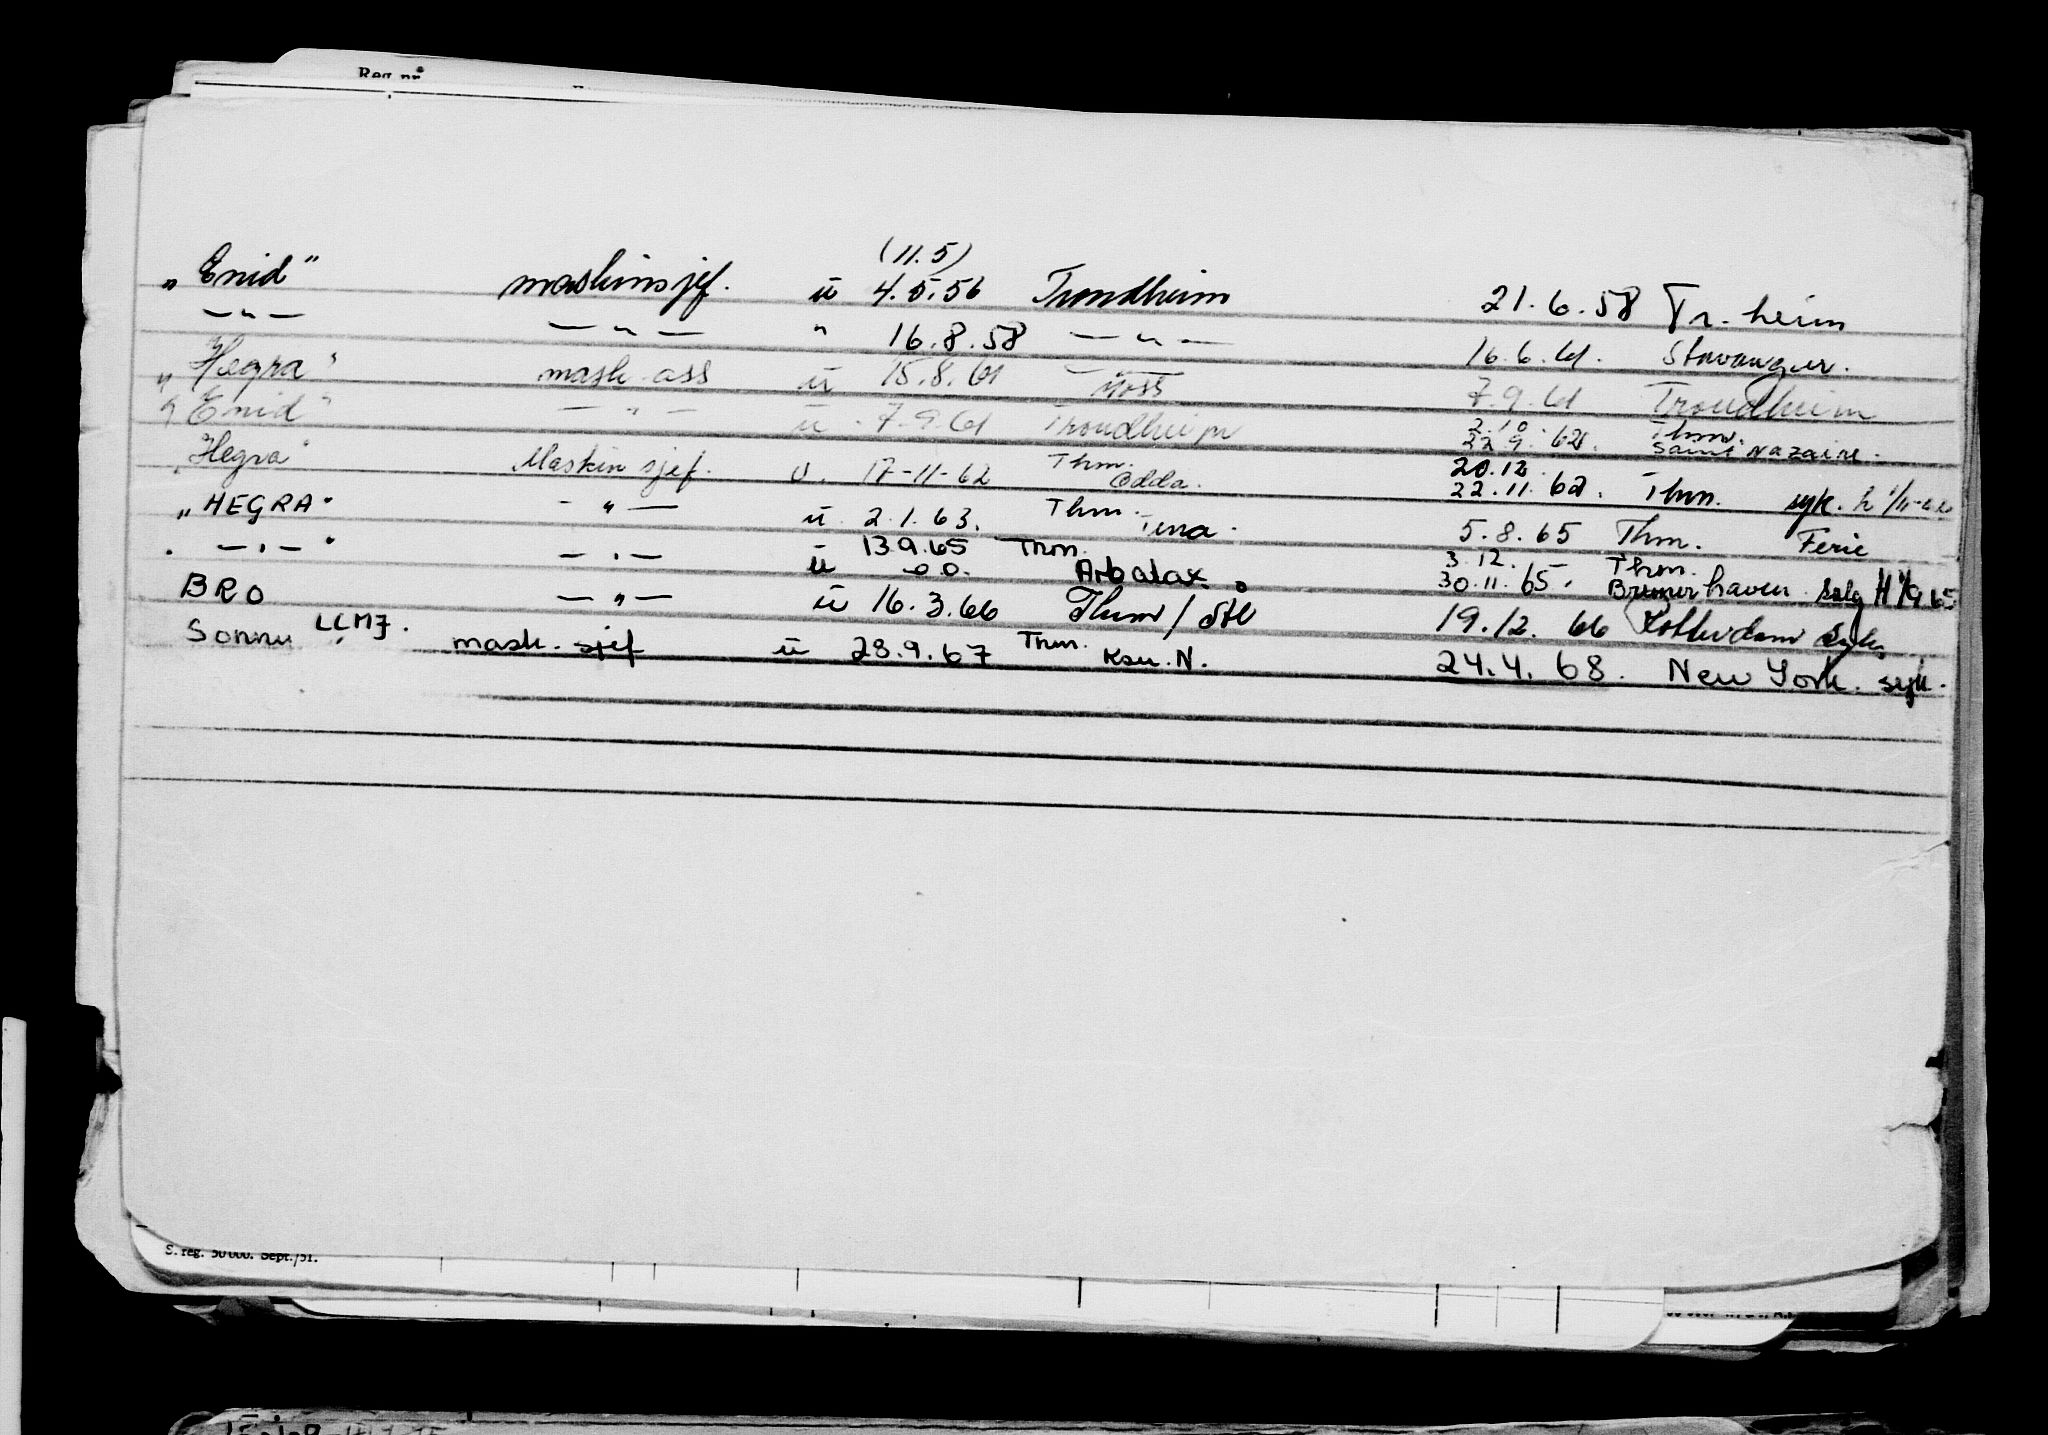 Reg. nr.
(11.5)
„Enid" maskinsjef. ü 4.5.56 Trondheim 21.6.58 Tr.heim
— „ — — „ — " 16.8.58 — „ — 16.6.61. Stavanger.
„Hegra" mask. ass ü 15.8.61 Moss 7.9.61 Trondheim
„Enid" — " — ü 7.9.61 Trondheim 2.10. Thm.
22.9.62. Saint Nazaire.
„Hegra" Maskinsjef. ü. 17-11-62 Thm. Odda. 20.12.
22.11.62. Thm. syk.
„HEGRA" — " — ü 2.1.63. Thm. 5.8.65 Thm. Ferie
— „ — " — „ — ü 13.9.65 Thm. Arbatax 3.12. Thm.
30.11.65. Bremerhaven. Salg
BRO — „ — ü 16.3.66 Thm/ 19.12.66 Rotterdam
LCMJ.
mask. sjef ü 28.9.67 Thm. Ksu. N. 24.4.68. New York. syk.
S. reg. 50 000. Sept./51.